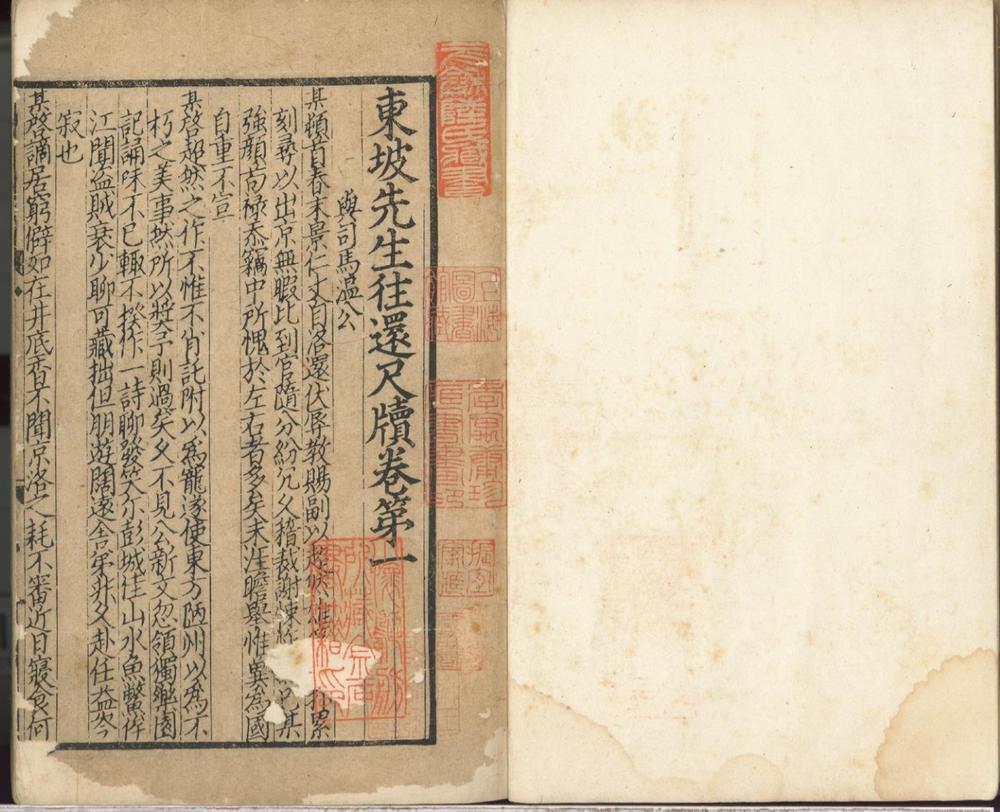 東坡先生往還尺牘卷第一
與司馬溫公
某頓首春末景仁丈自洛還伏辱教賜副以超然雄 累
刻尋以出京無暇比到官隨分紛冗久稽裁謝悚 某
強顏苟祿忝竊中所愧於左右者多矣未涯瞻舉惟兾爲國
自重不宣
某啓超然之作不惟不肖託附以爲寵遂使東方陋州以爲不
朽之美事然所以奬予則過矣久不見公新文忽領獨樂園
記誦味不已輙不揆作一詩聊發笑尒彭城佳山水魚蟹侔
江閒盗賊衰少聊可藏拙但朋遊闊遠舍弟非久赴任益岑
寂也
某啓謫居窮僻如在井底杳不聞京洛之耗不審近日寢食何